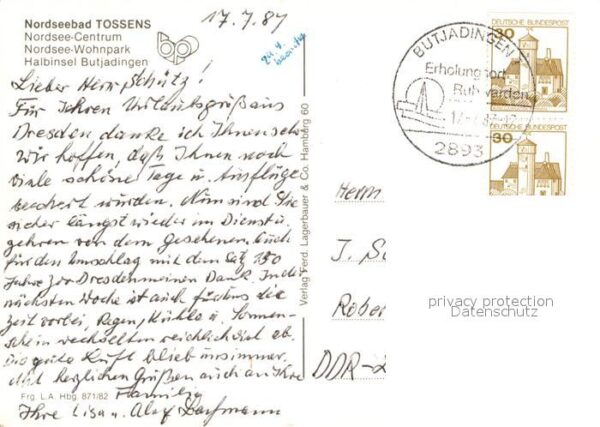 Nordseebad TOSSENS
Nordsee-Centrum
Nordsee-Wohnpark
Halbinsel Butjadingen
17.7.87
Lieber Herr Schütz!
Für Ihren Urlaubsgruß aus
Dresden danke ich Ihnen sehr
Wir hoffen, daß Ihnen noch
viele schöne Tage u. Ausflüge
beschert wurden. Nun sind Sie
sicher längst wieder im Dienst u.
zehren von dem Gesehenen. Auch
für den Umschlag mit dem
Jahre Zoo Dresden meinen Dank. In der
nächsten Woche ist auch für uns die
Zeit vorbei, Regen, Kühle u. Sonnen-
schein wechselten reichlich ab.
Die gute Luft blieb uns immer.
Mit herzlichen Grüßen auch an Ihre
Familie
Ihre Lisa u.
Frg. L.A. Hbg. 871/82
Verlag Ferd. Lagerbauer & Co. Hamburg 60
BUTJADINGEN
Erholungsort
Ruhwarden
2893
DEUTSCHE BUNDESPOST
30
DEUTSCHE BUNDESPOST
30
Herrn
J. Sc
Rober
DDR-
privacy protection
Datenschutz